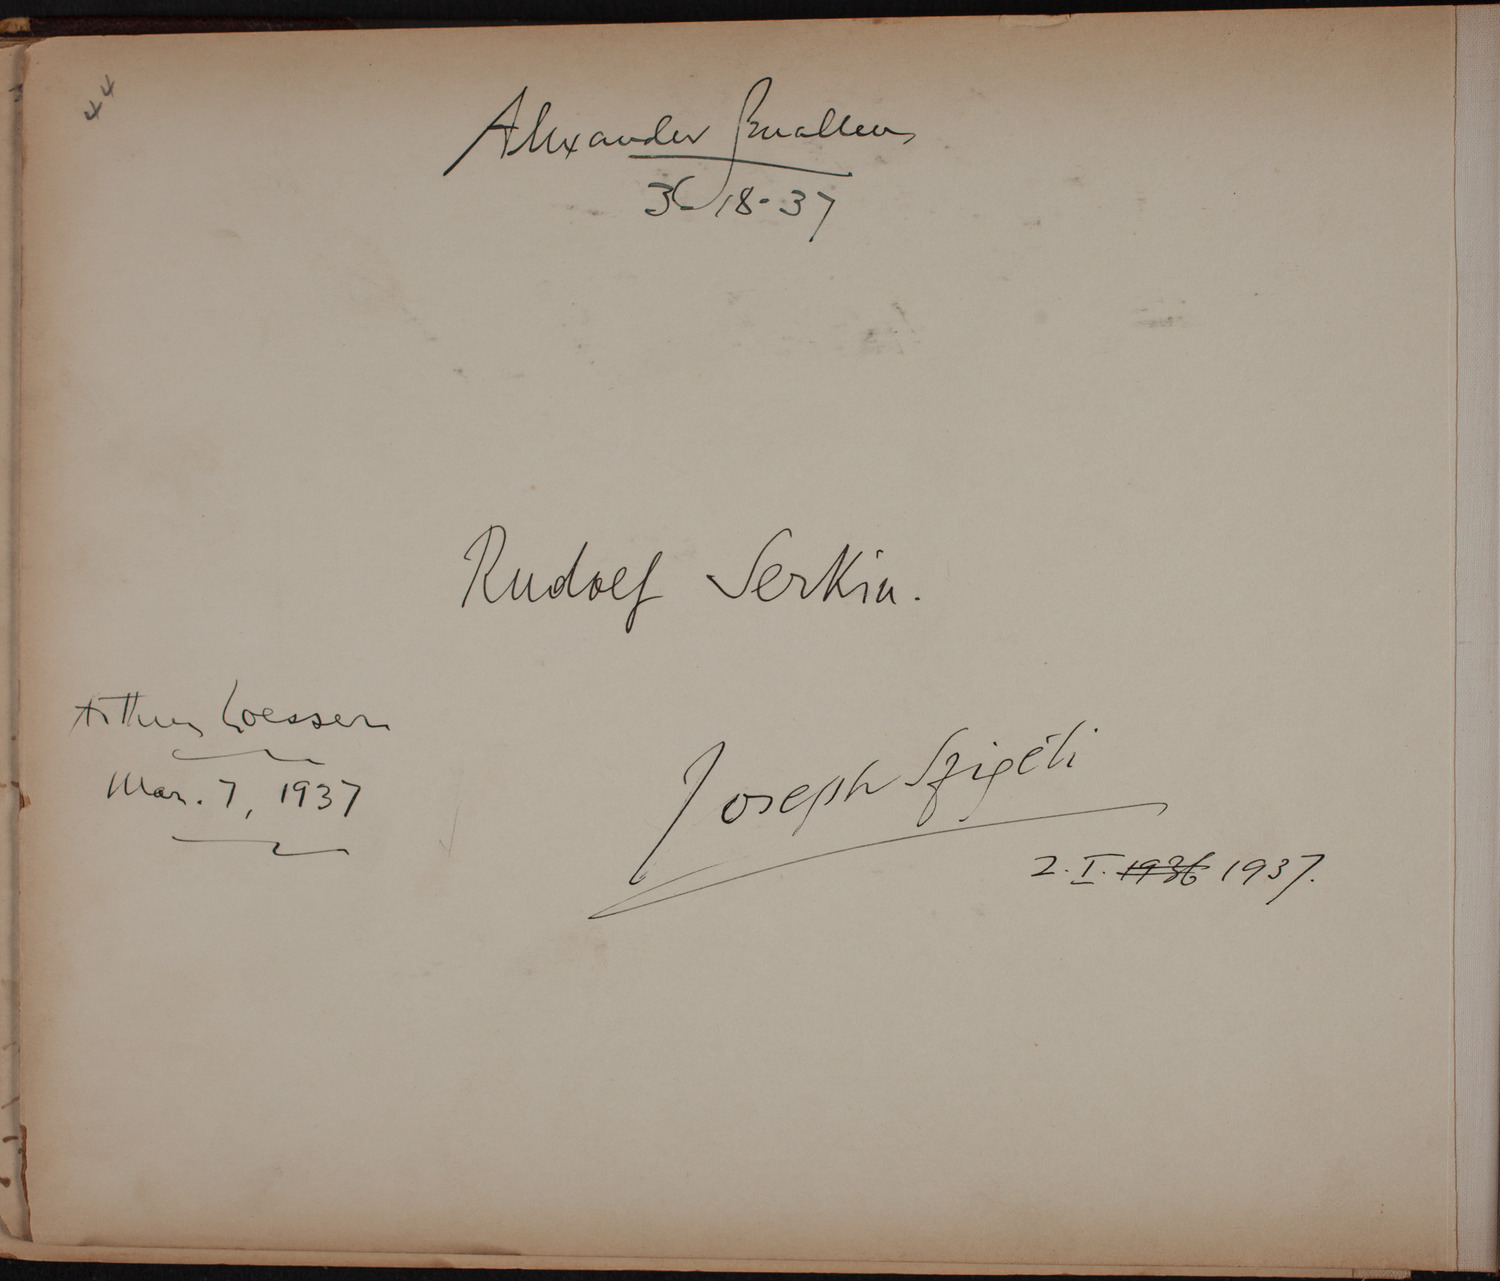 44
Alexander Smallens
3-18-37
Rudolf Serkin.
Arthur Loesser
Mar. 7, 1937
Joseph Szigeti
2. I. 1936 1937.